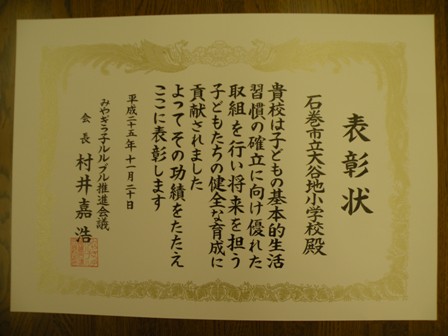 表彰状
石巻市立大谷地小学校殿
貴校は子どもの基本的生活
習慣の確立に向け優れた
取組を行い将来を担う
子どもたちの健全な育成に
貢献されました
よってその功績をたたえ
ここに表彰します
平成二十五年十一月二十日
みやぎっ子ルルブル推進会議
会長 村井嘉浩